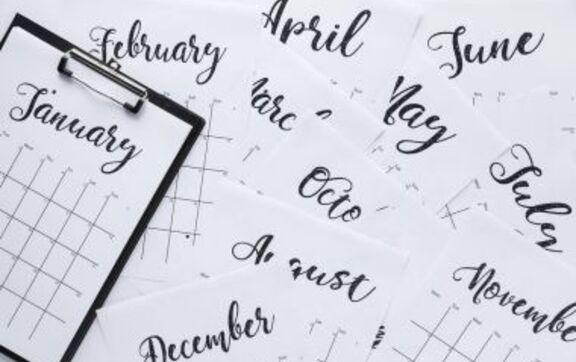 April
February
June
January
Marc
May
July
Octo
August
November
December